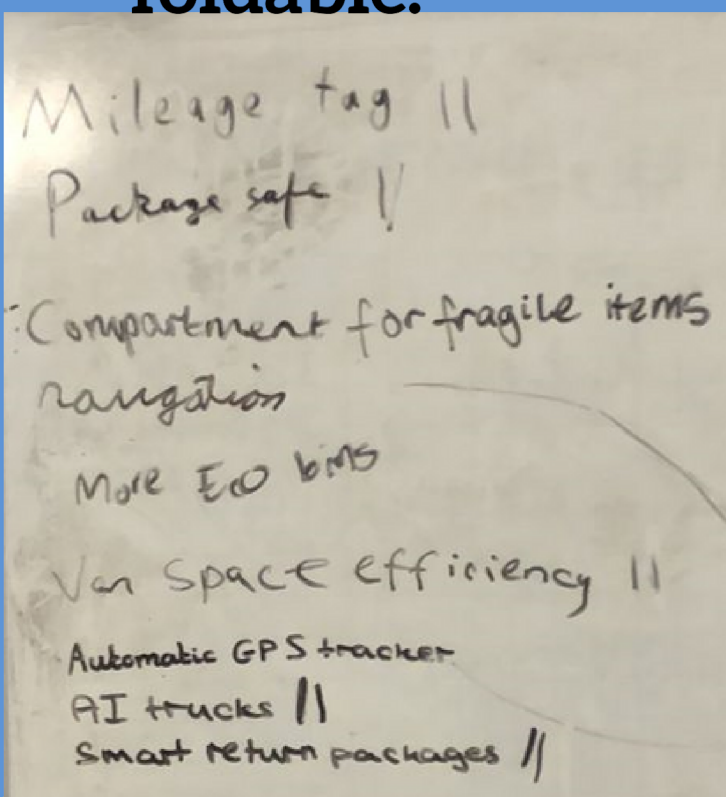 foldable.
Mileage tag ||
Package safe ||
Compartment for fragile items
navigation
More Eco bins
Van Space efficiency ||
Automatic GPS tracker
AI trucks ||
Smart return packages ||